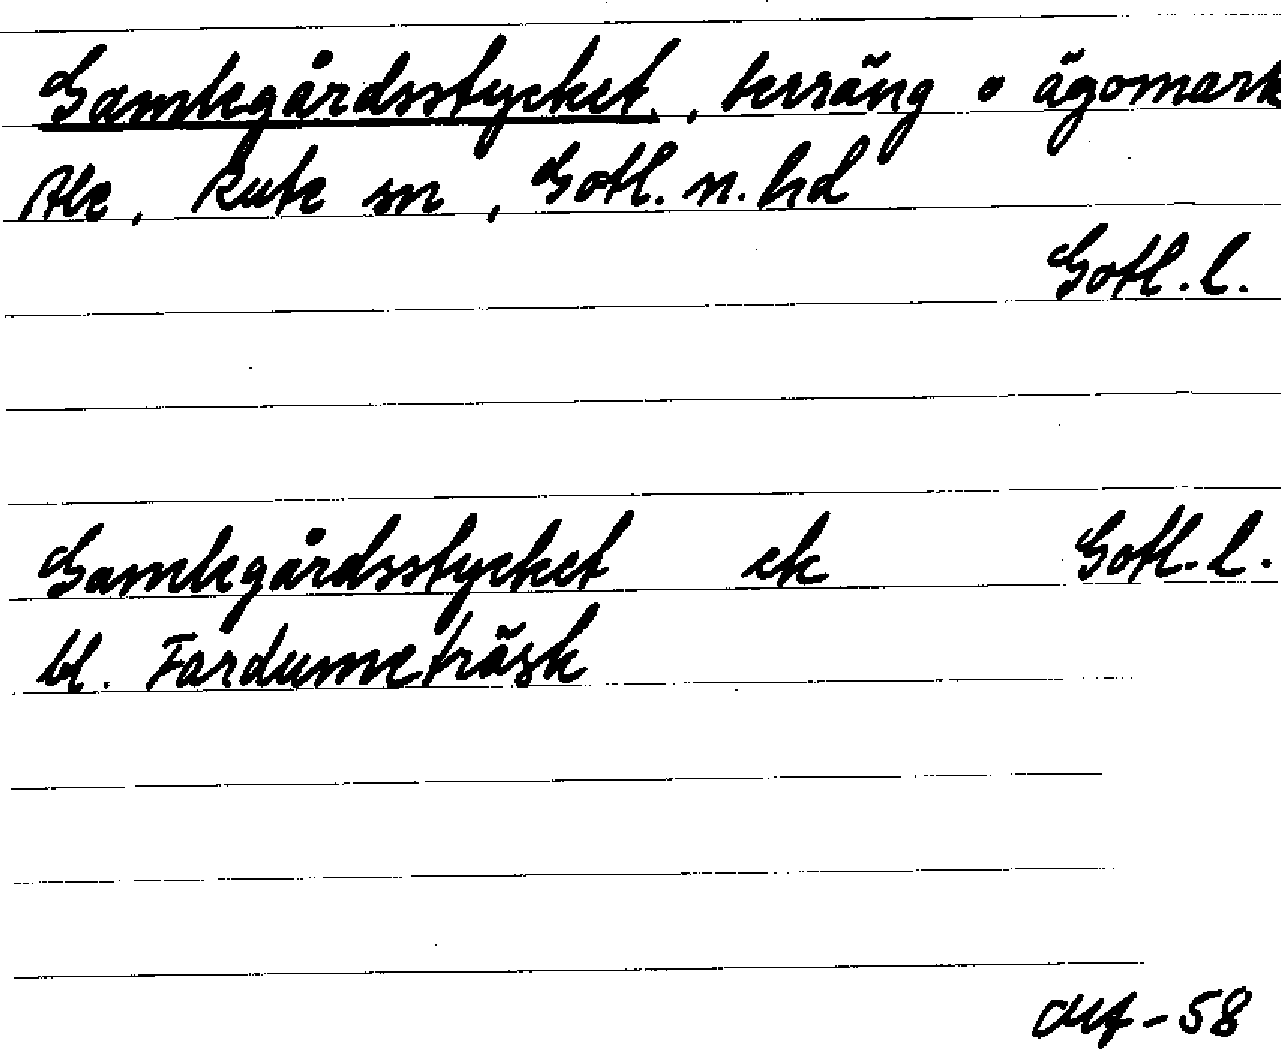 Gamlegårdsstycket, terräng o ägomark
Ale, Rute sn, Gotl. n. hd
Gotl. l.
Gamlegårdsstycket ek Gotl. l.
bl. Fardumeträsk
- 58